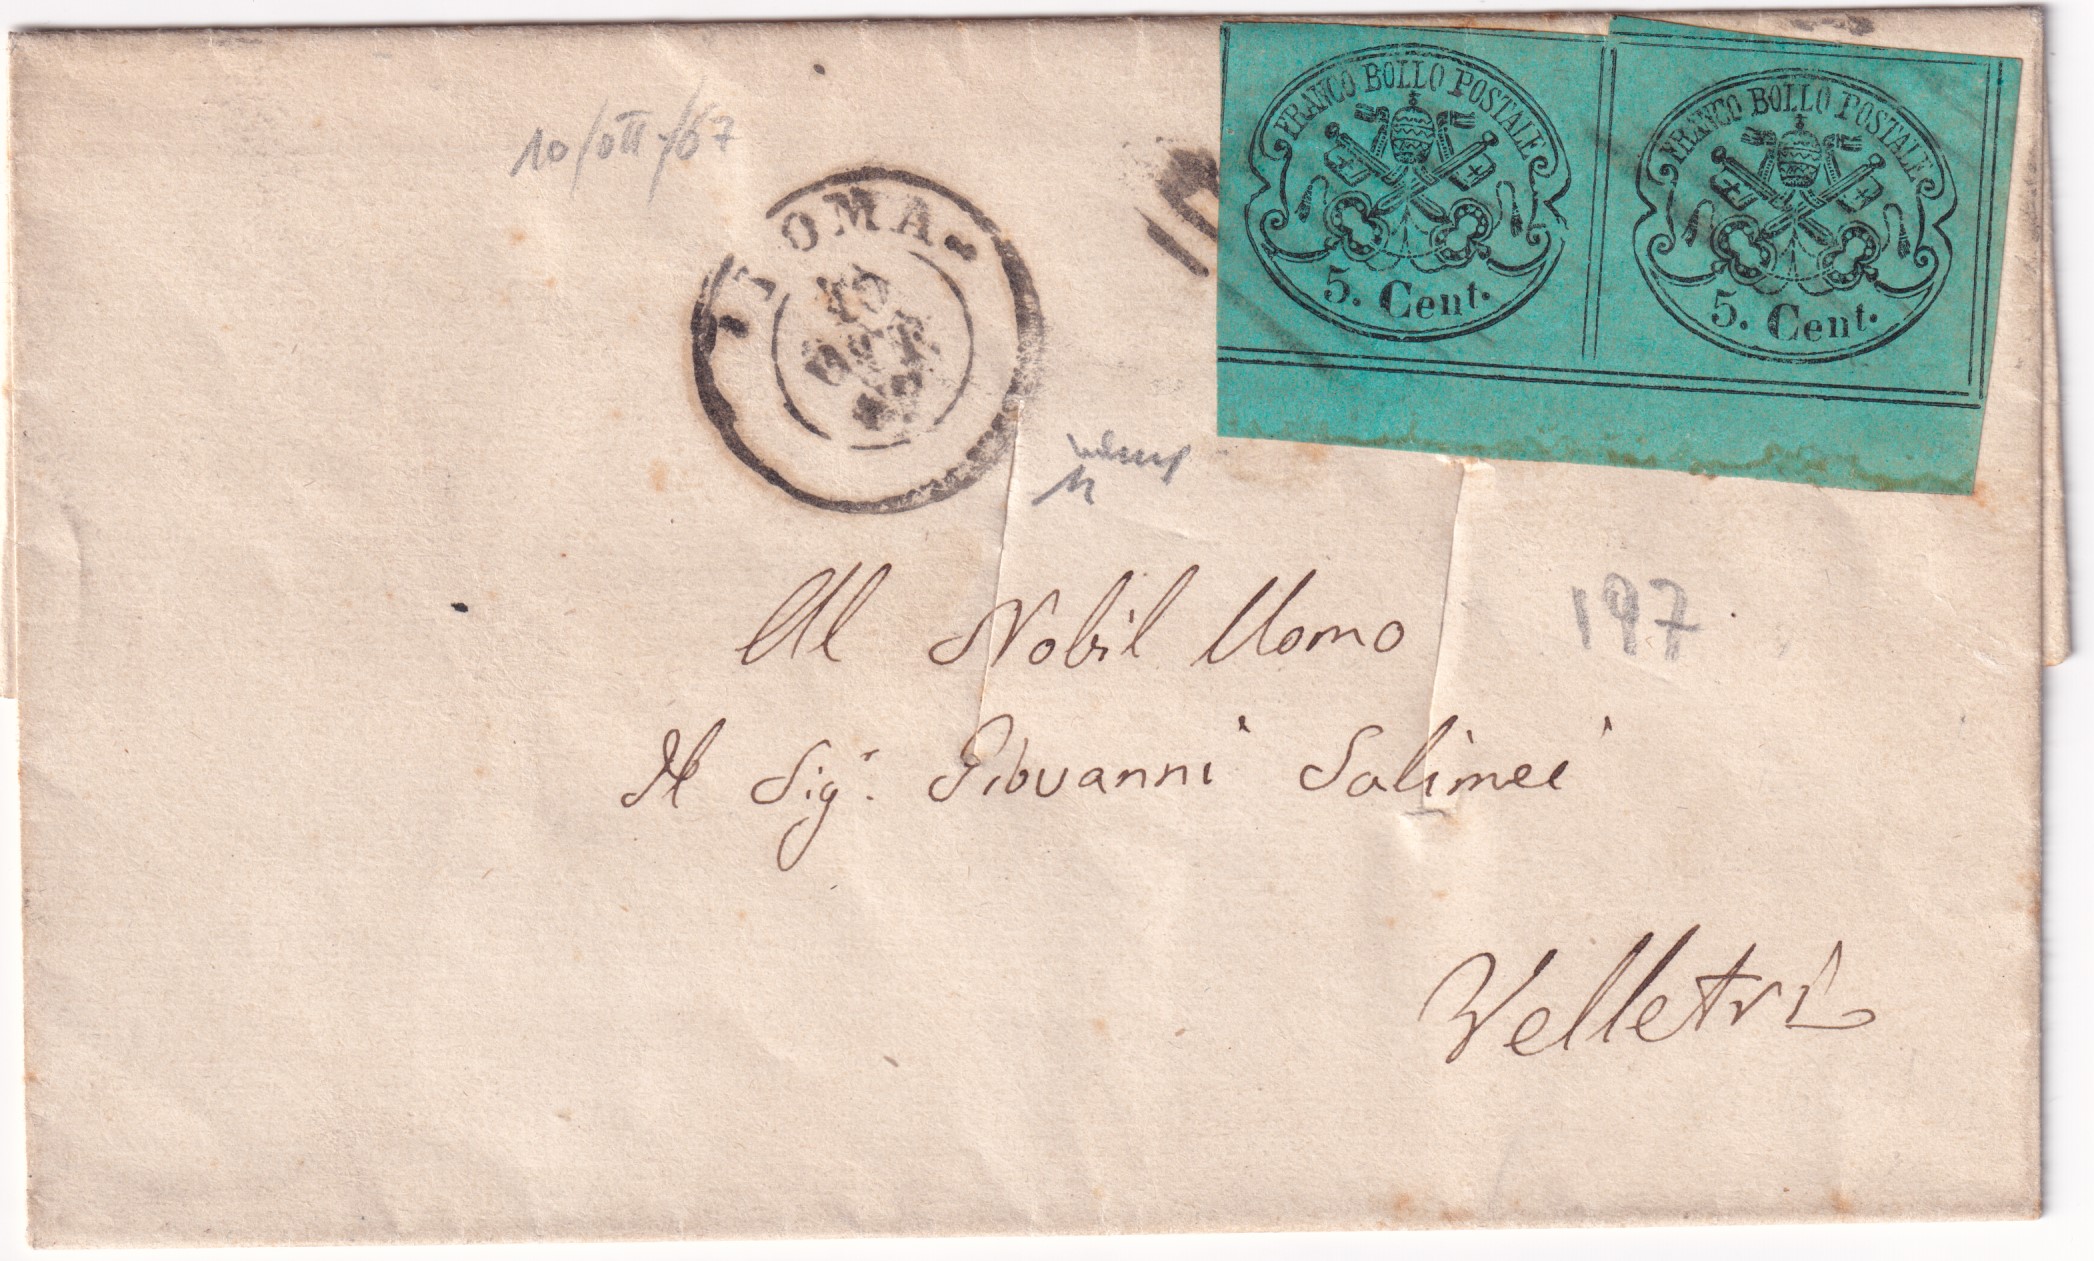 FRANCO BOLLO POSTALE
5. Cent.
FRANCO BOLLO POSTALE
5. Cent.
10/ott/67
ROMA
10
OTT
67
197
Al Nobil Uomo
Il Sigr. Giovanni Salimei
Velletri